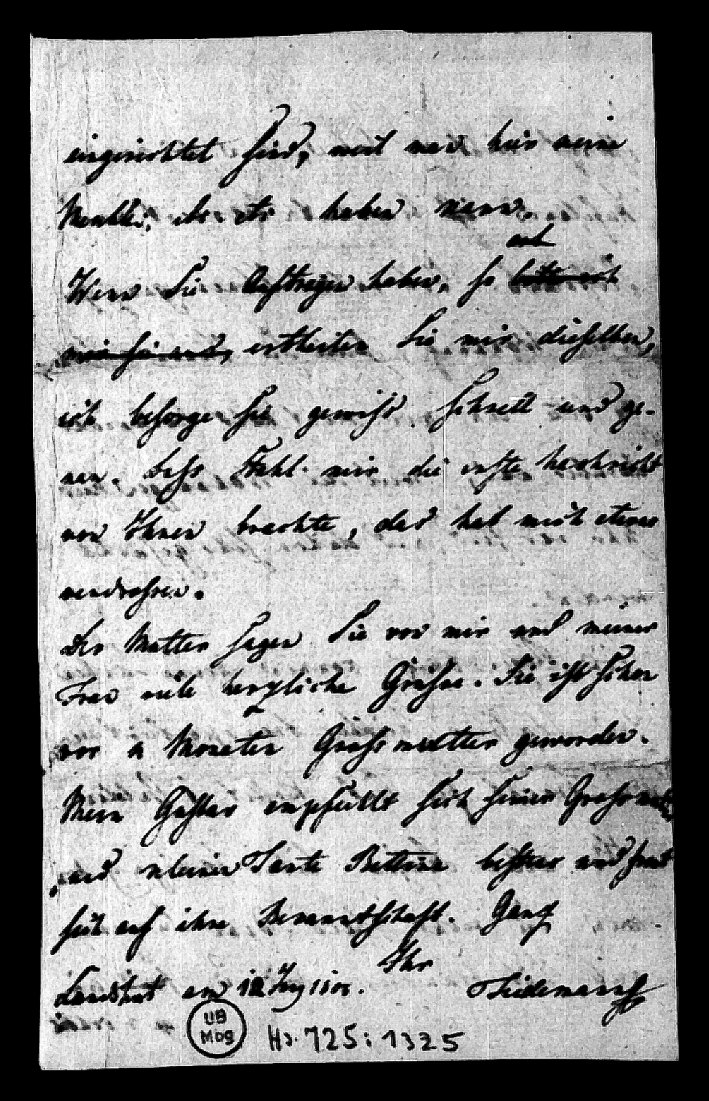 eingerichtet sind, weil man hier keine
haben kann.
auch
Wenn Sie Aufträge haben, so
ertheilen Sie mir dieselben,
ich besorge sie gewiß schnell und ge-
nau. Daß Stahl mir die erste Nachricht
von Ihnen brachte, das hat mich etwas
verdrossen.
Der Mutter sagen Sie von mir und meiner
Frau viele herzliche Grüße. Sie ist schon
vor 4 Monaten Großmutter geworden.
Mein Gustav empfiehlt sich seiner Großmutter
und seiner Tante Bettina bestens und freut
sich auf ihre Bekanntschaft. Ganz
Ihr
Landshut am 12
Tiedemann
UB
Mbg
Hs. 725:1325